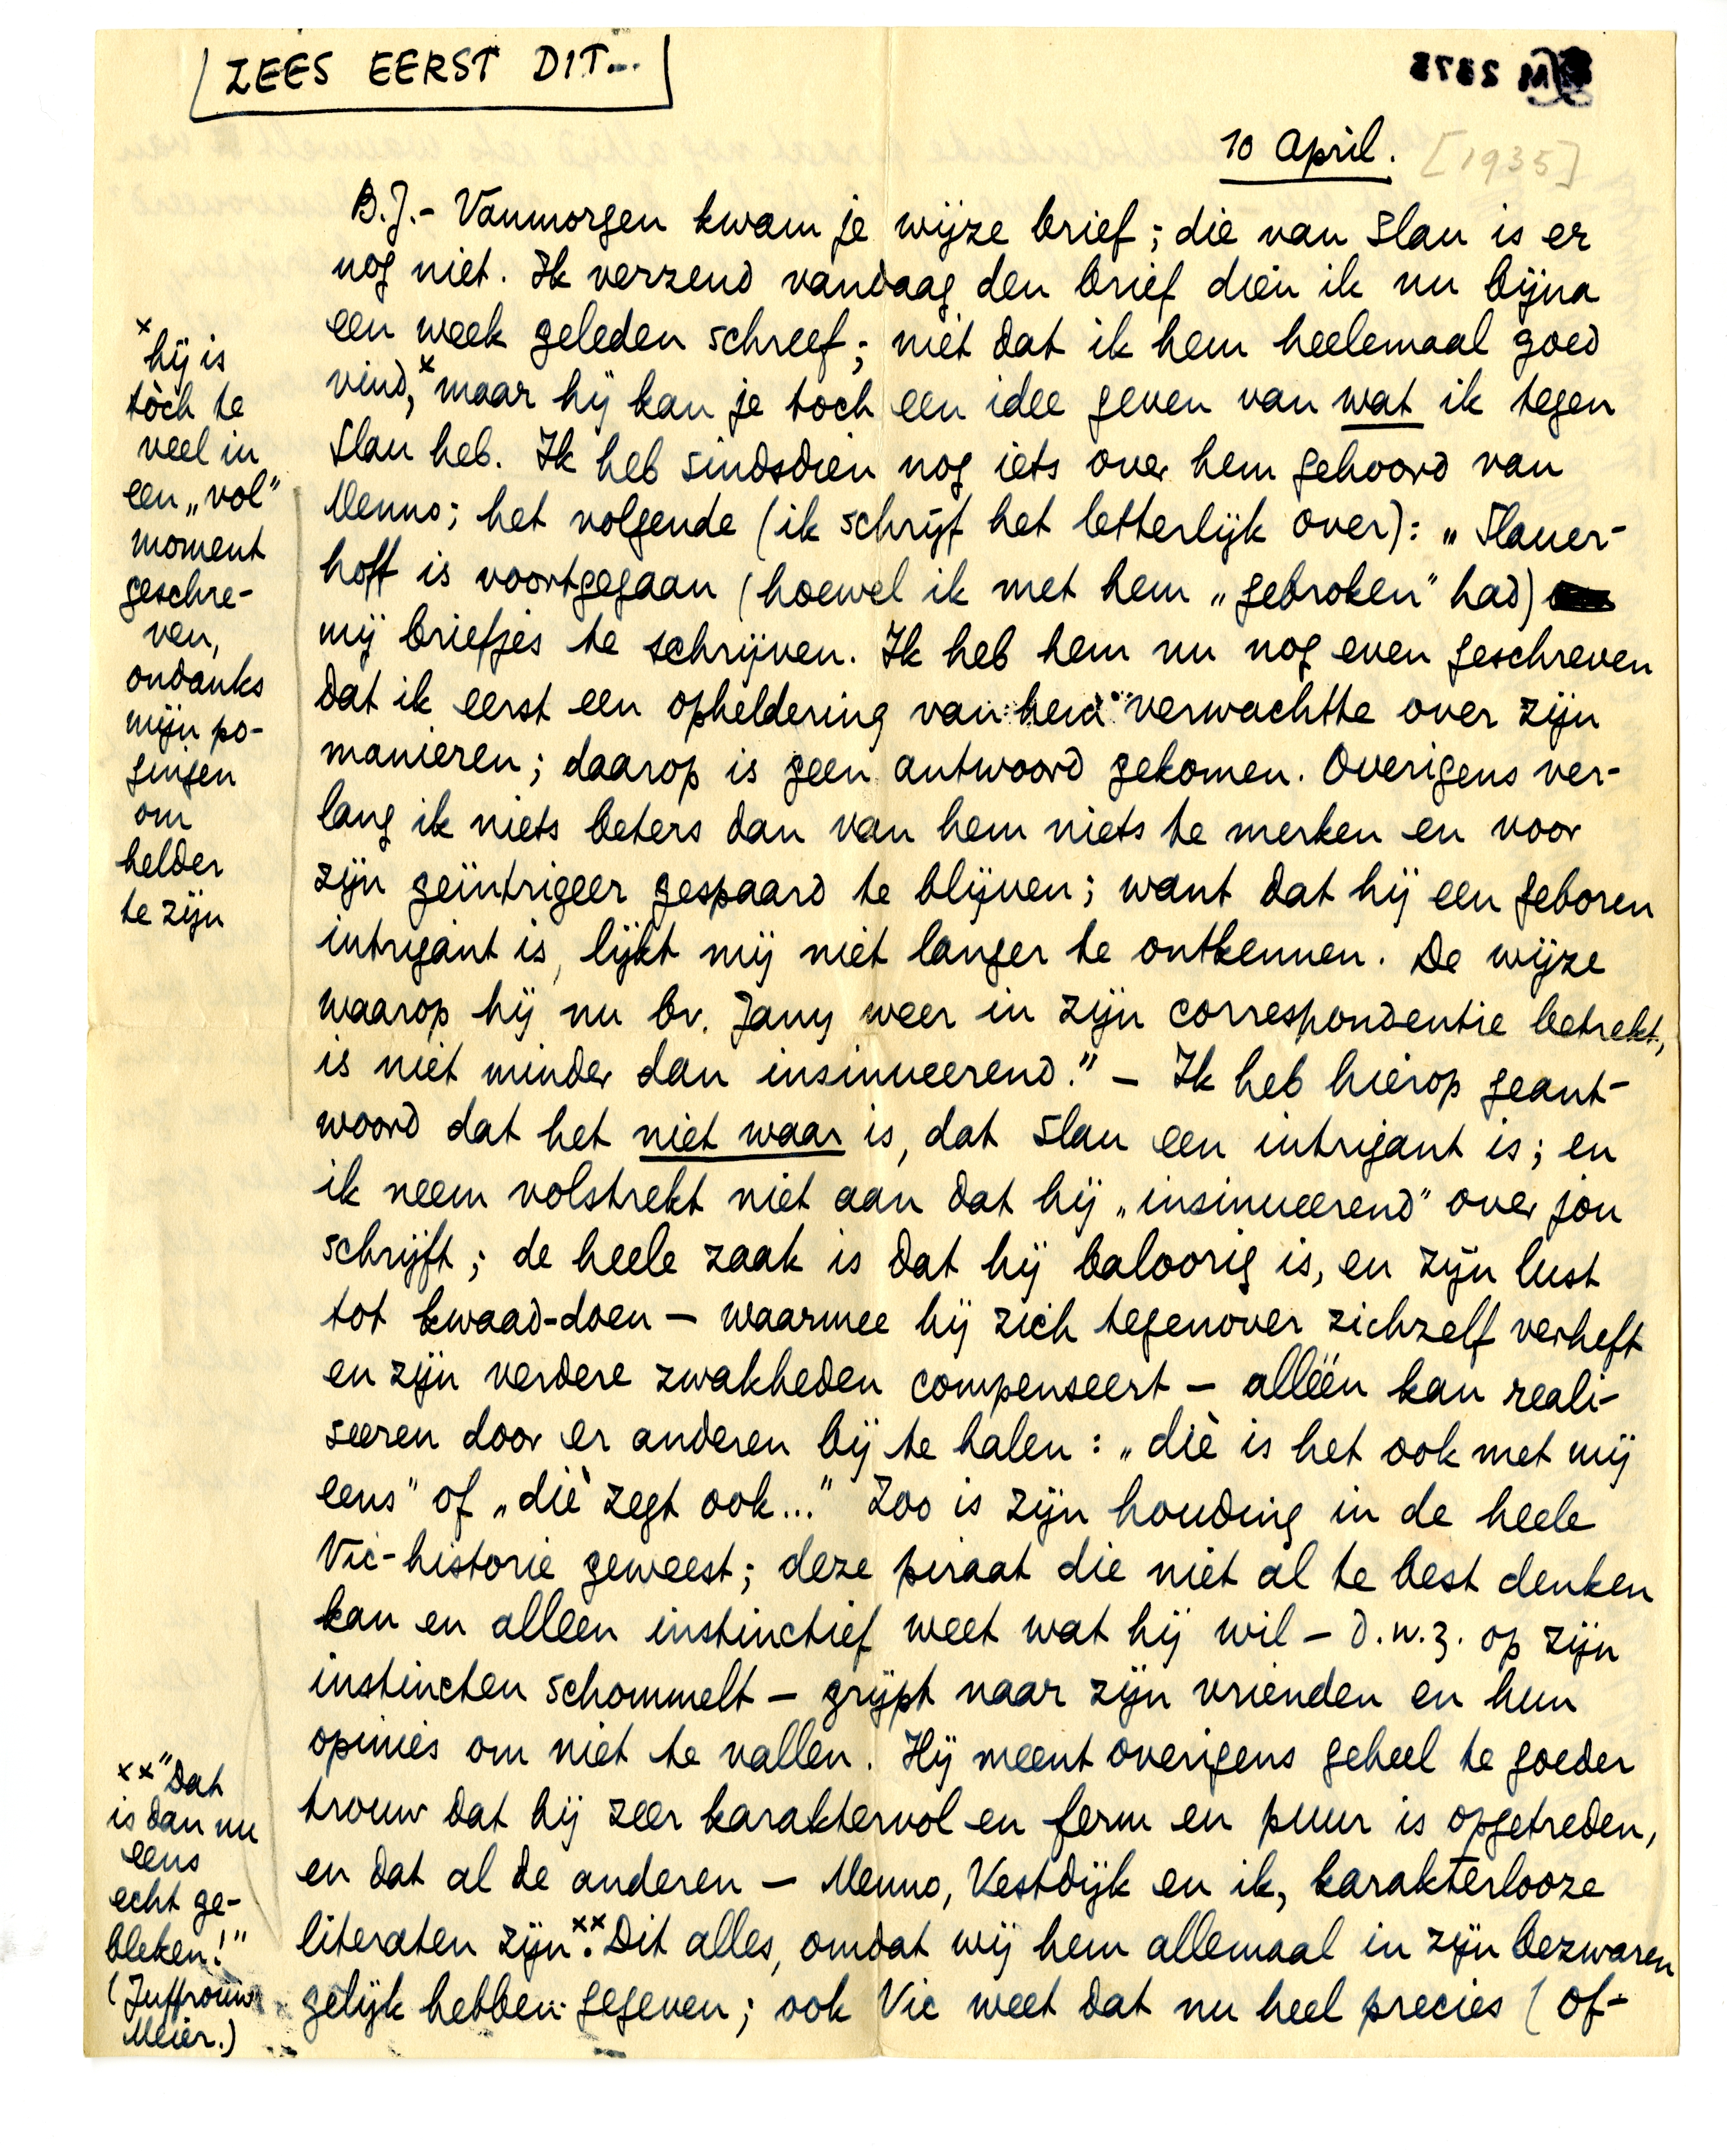 LEES EERST DIT...
10 April. [1935]
B.J.- Vanmorgen kwam je wijze brief; die van Slau is er
nog niet. Ik verzend vandaag den brief dien ik nu bijna
een week geleden schreef; niet dat ik hem heelemaal goed
vind,× maar hij kan je toch een idee geven van wat ik tegen
Slau heb. Ik heb sindsdien nog iets over hem gehoord van
Menno; het volgende (ik schrijf het letterlijk over): „Slauer-
hoff is voortgegaan (hoewel ik met hem „gebroken" had)
mij briefjes te schrijven. Ik heb hem nu nog even geschreven
dat ik eerst een opheldering van hem verwachtte over zijn
manieren; daarop is geen antwoord gekomen. Overigens ver-
lang ik niets beters dan van hem niets te merken en voor
zijn geïntrigeer gespaard te blijven; want dat hij een geboren
intrigant is, lijkt mij niet langer te ontkennen. De wijze
waarop hij nu bv. Jany weer in zijn correspondentie betrekt,
is niet minder dan insinueerend." – Ik heb hierop geant-
woord dat het niet waar is, dat Slau een intrigant is; en
ik neem volstrekt niet aan dat hij „insinueerend" over jou
schrijft; de heele zaak is dat hij baloorig is, en zijn lust
tot kwaad-doen – waarmee hij zich tegenover zichzelf verheft
en zijn verdere zwakheden compenseert – alléén kan reali-
seeren door er anderen bij te halen: „diè is het ook met mij
eens" of „diè zegt ook..." Zoo is zijn houding in de heele
Vic-historie geweest; deze piraat die niet al te best denken
kan en alleen instinctief weet wat hij wil – d.w.z. op zijn
instincten schommelt – grijpt naar zijn vrienden en hun
opinies om niet te vallen. Hij meent overigens geheel te goeder
trouw dat hij zeer karaktervol en ferm en puur is opgetreden,
en dat al de anderen – Menno, Vestdijk en ik, karakterlooze
literaten zijn.×× Dit alles, omdat wij hem allemaal in zijn bezwaren
gelijk hebben gegeven; ook Vic weet dat nu heel precies (of-
× hij is
tòch te
veel in
een „vol"
moment
geschre-
ven,
ondanks
mijn po-
gingen
om
helder
te zijn
×× "Dat
is dan nu
eens
echt ge-
bleken!"
(Juffrouw
Meier.)